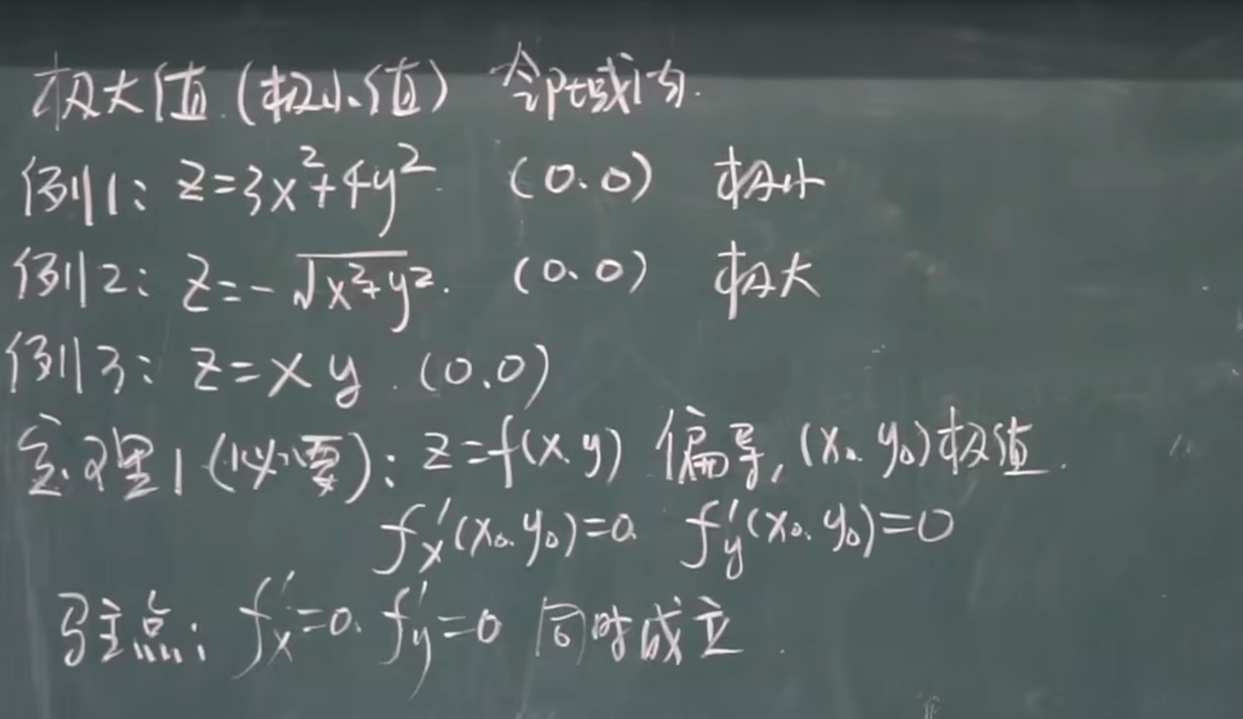 极大值(极小值) 邻域内.
例1: z=3x²+4y². (0.0) 极小
例2: z=-√(x²+y²). (0.0) 极大
例3: z=xy. (0.0)
定理1(必要): z=f(x.y) 偏导, (x₀.y₀)极值.
f'x(x₀.y₀)=0. f'y(x₀.y₀)=0
驻点: f'x=0. f'y=0 同时成立.